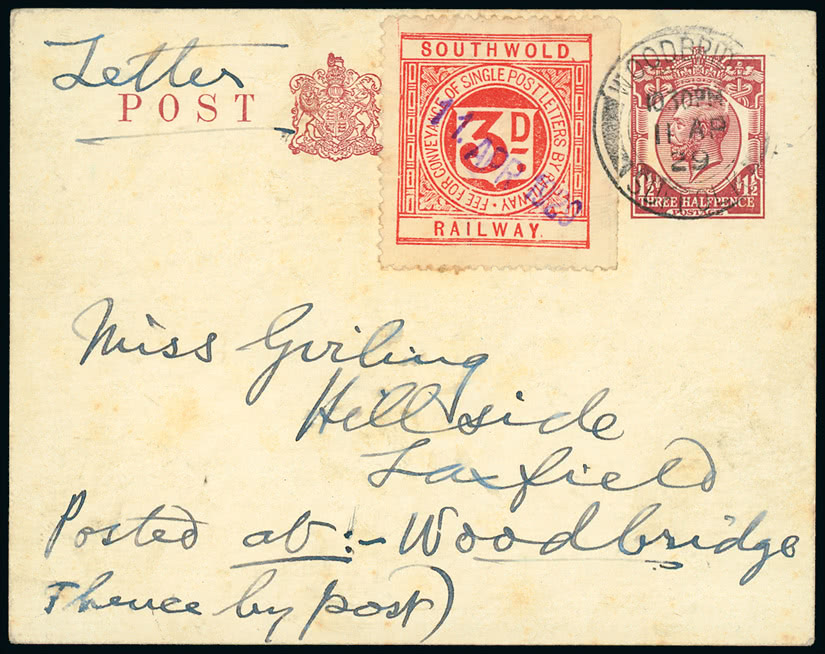 Letter
POST
SOUTHWOLD.
FEE FOR CONVEYANCE OF SINGLE POST LETTERS BY RAILWAY
3D.
11. APR
RAILWAY.
WOODBRIDGE
10.30PM
11 AP
29
1½ 1½
THREE HALFPENCE
POSTAGE
Miss Girling
Hillside
Laxfield
Posted at:- Woodbridge
Thence by post)